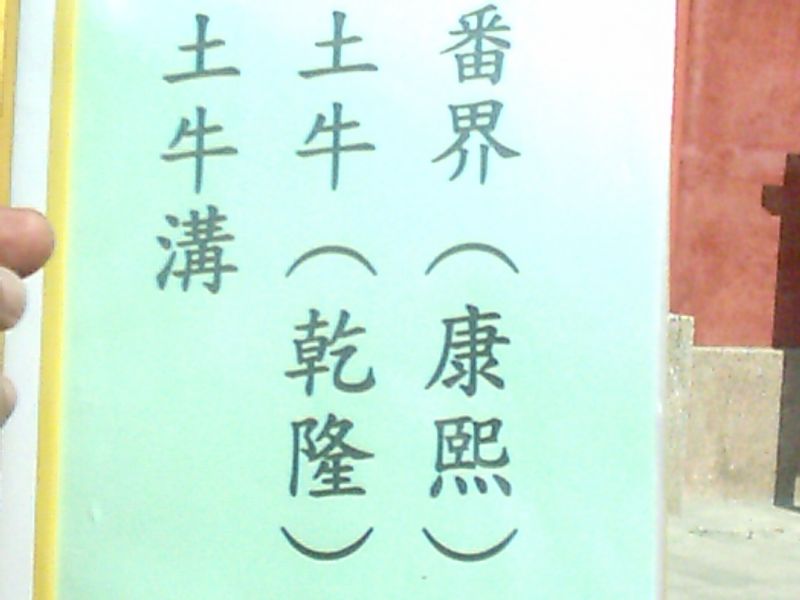 番界（康熙）
土牛（乾隆）
土牛溝